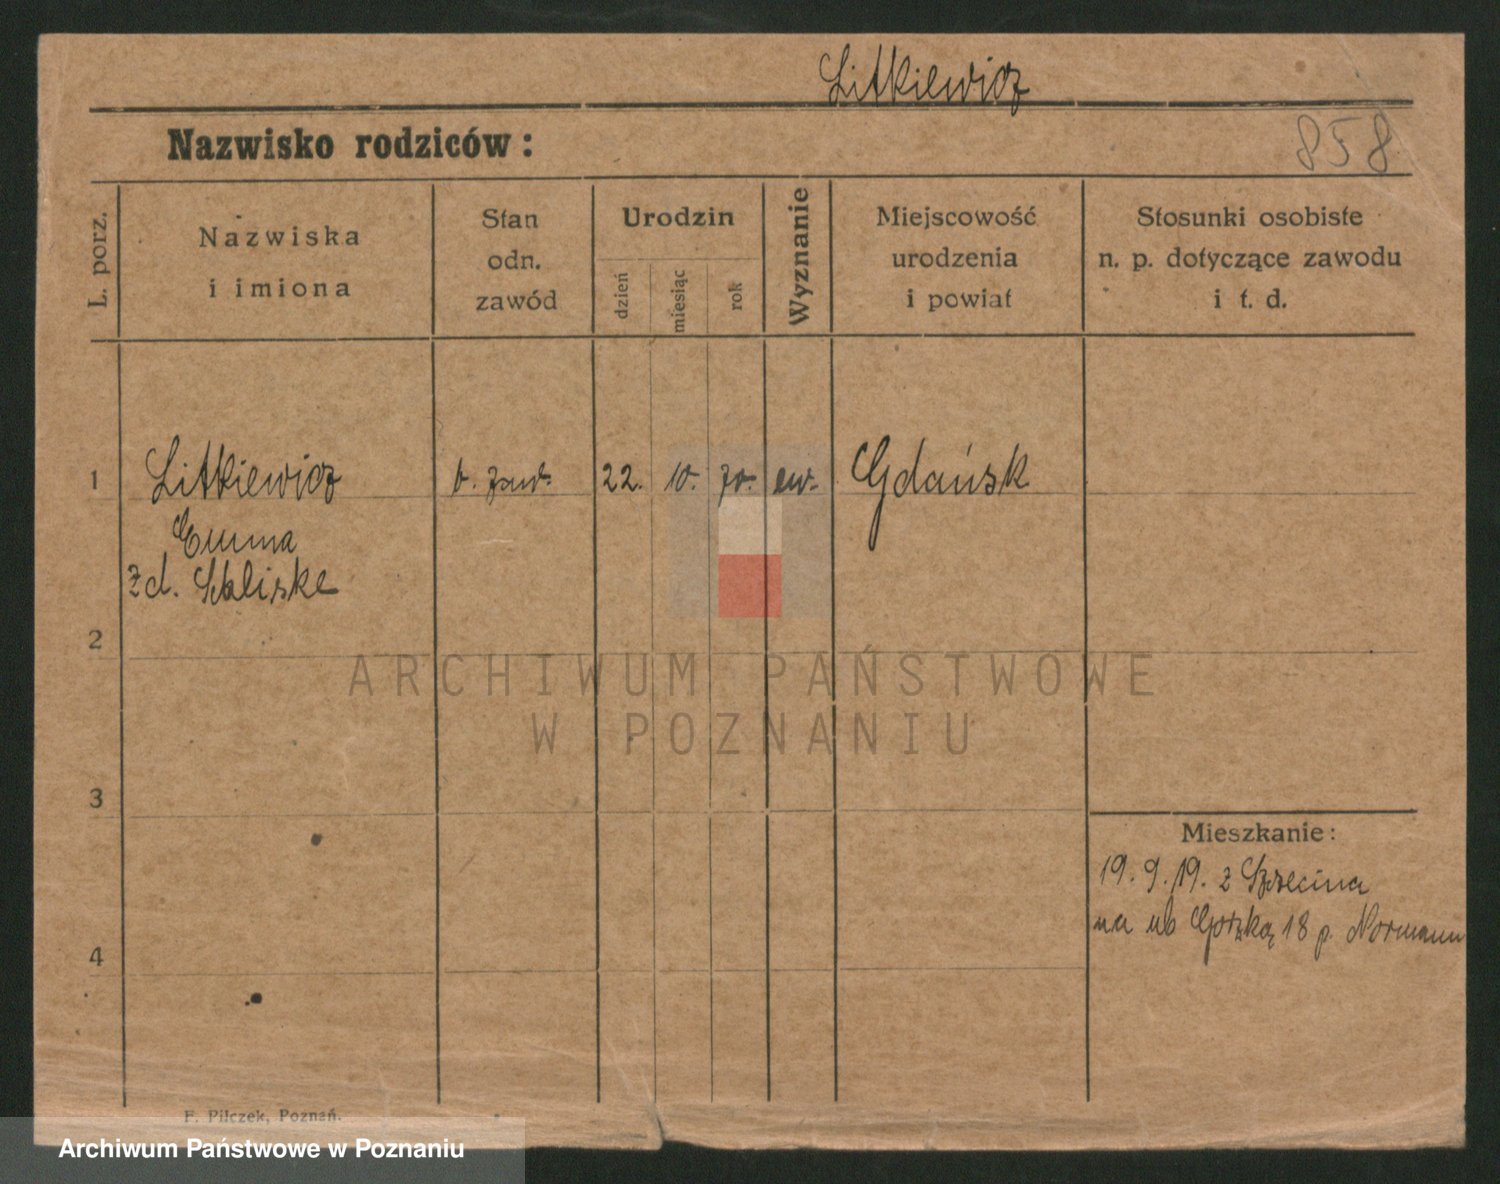 Litkiewicz
Nazwisko rodziców:
858
L. porz.
Nazwiska
i imiona
Stan
odn.
zawód
Urodzin
dzień
miesiąc
rok
Wyznanie
Miejscowość
urodzenia
i powiat
Stosunki osobiste
n. p. dotyczące zawodu
i t. d.
1
Litkiewicz
b. zaw.
22.
10.
70.
ew.
Gdańsk
Emma
zd. Schliske
2
ARCHIWUM PAŃSTWOWE
W POZNANIU
3
Mieszkanie:
19. 9. 19. z Szczecina
na ul. 18 p. Normann
4
F. Pilczek, Poznań.
Archiwum Państwowe w Poznaniu